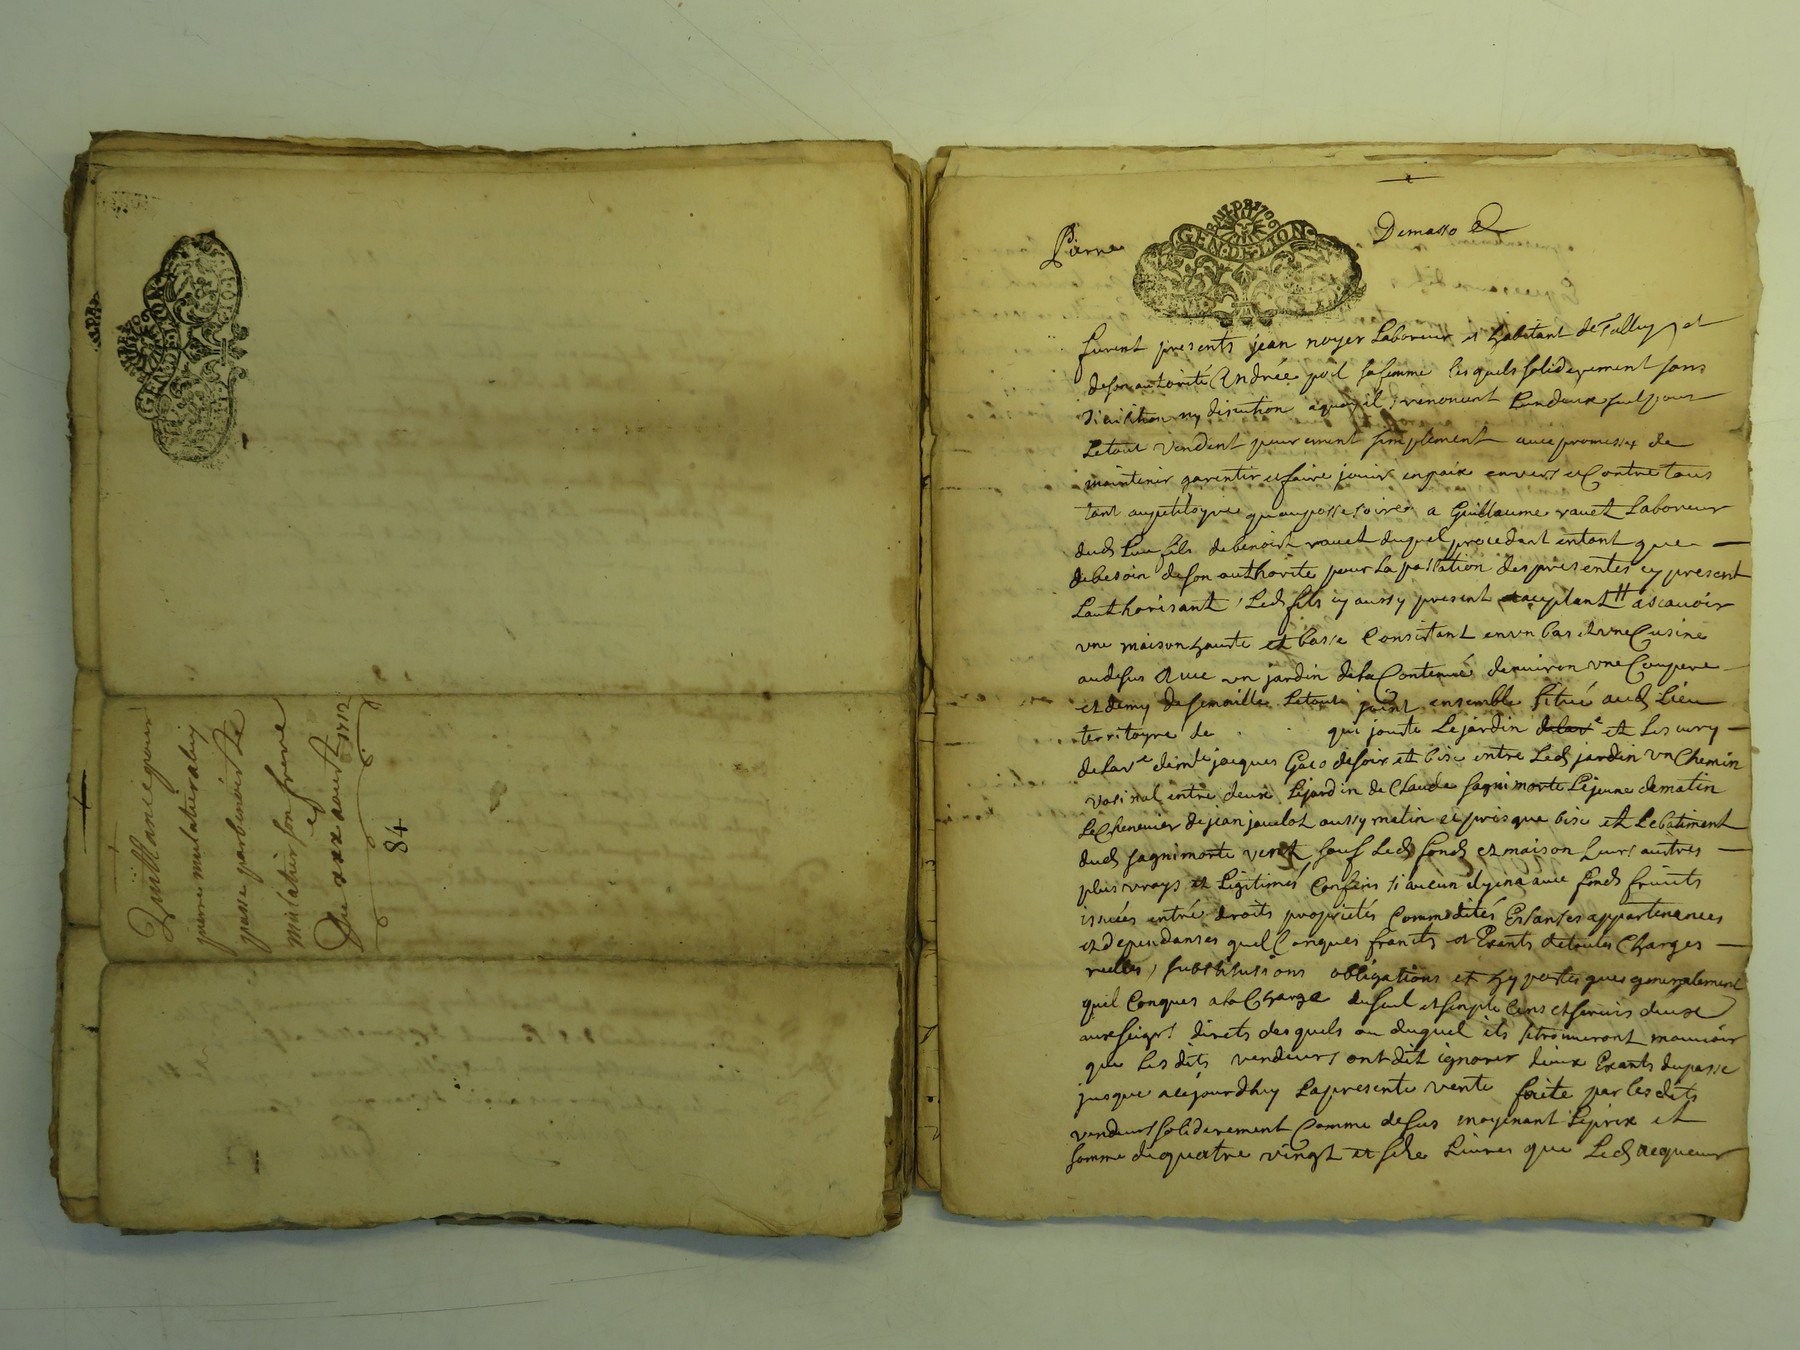 GEN·DE·LION
Quittance pour
pierre mulatier a luy
passé par benoiste
mulatier son frere
Du xxx aoust 1712
84
BAVX DE 1700
GEN·DE·LION
Pierre Demasso
furent presents jean noyer Laboreur et habitant de Talluy et
de son autorité Andrée poil sa femme lesquels soliderement sans
division ny discution a quoy il renoncent Lun deux seul pour
Letout vendent purement simplement avec promesse de
maintenir garentir et faire jouir en paix envers et Contre tous
tant au petitoyre qu au possessoire a Guillaume ravet Laboreur
dud Lieu fils de benoist ravet duquel procedant entant que
de besoin de son authorité pour La passation des presentes cy present
Lauthorisant Led fils cy aussy present acceptant ascavoir
une maison haute et basse Consistant en un bas et une Cusine
au desus Avec un jardin de la Contenue denviron une Coupere
et demy de semaille Letout joint ensemble situé aud Lieu
territoyre de qui jouste Le jardin et Les
de la ve de mre jacques de soir et bise entre Led jardin un Chemin
voisinal entre deux Lejardin de Claude fagnimorte Lejeune de matin
Le Chenevier de jean aussy matin et presque bise et Le batiment
dud fagnimorte vent sauf Led fond et maison Leurs austres
plus vrays et Legitimes Confins si aucun dy en a avec fond fruits
issuées entré droits propriétés Commodités Estanses appartenances
et dependanses quelConques francts et Exants de toutes Charges
reelles, substitussions obligations et hypoteques generalement
quil Conques a la Charge du seul et simple Cens et servis deux
aux seigrs directs desquels ou duquel ils se trouveront mouvoir
que Les dits vendeurs ont dit ignorer Exants du passe
jusque a cejourdhuy La presente vente faite par les dits
vendeurs soliderement Comme desus moyenant Le prix et
somme de quatre vingt et seze Livres que Led acqueur